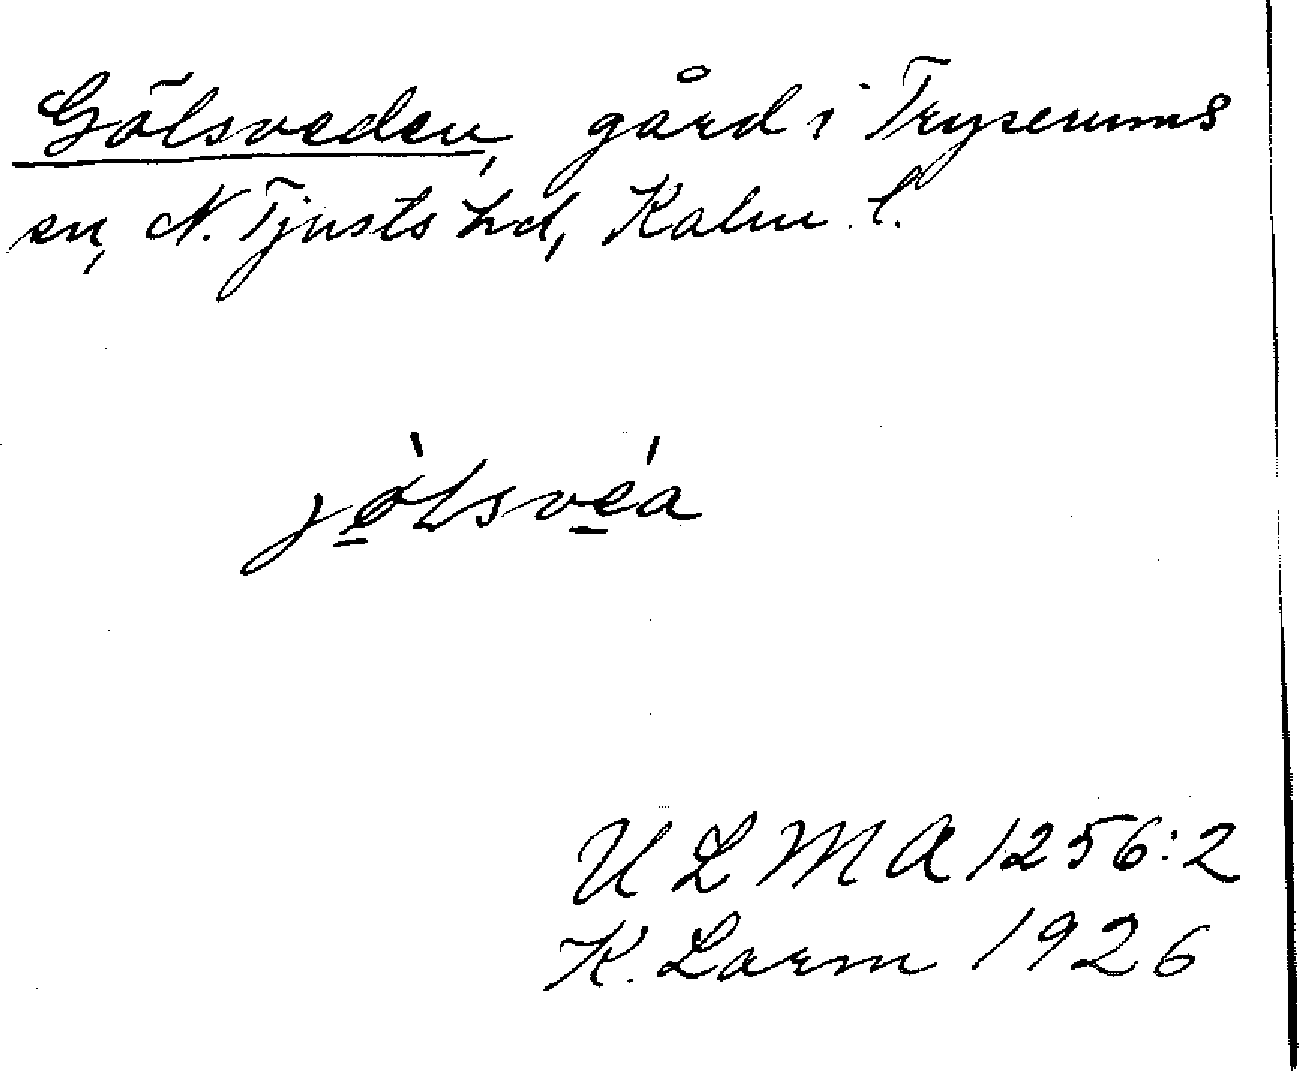 Gölsveden, gård i Tryserums
sn, N. Tjusts hd, Kalm. l.
jø̱̀lsvé̱a
U L M A 1256:2
K. Larm 1926